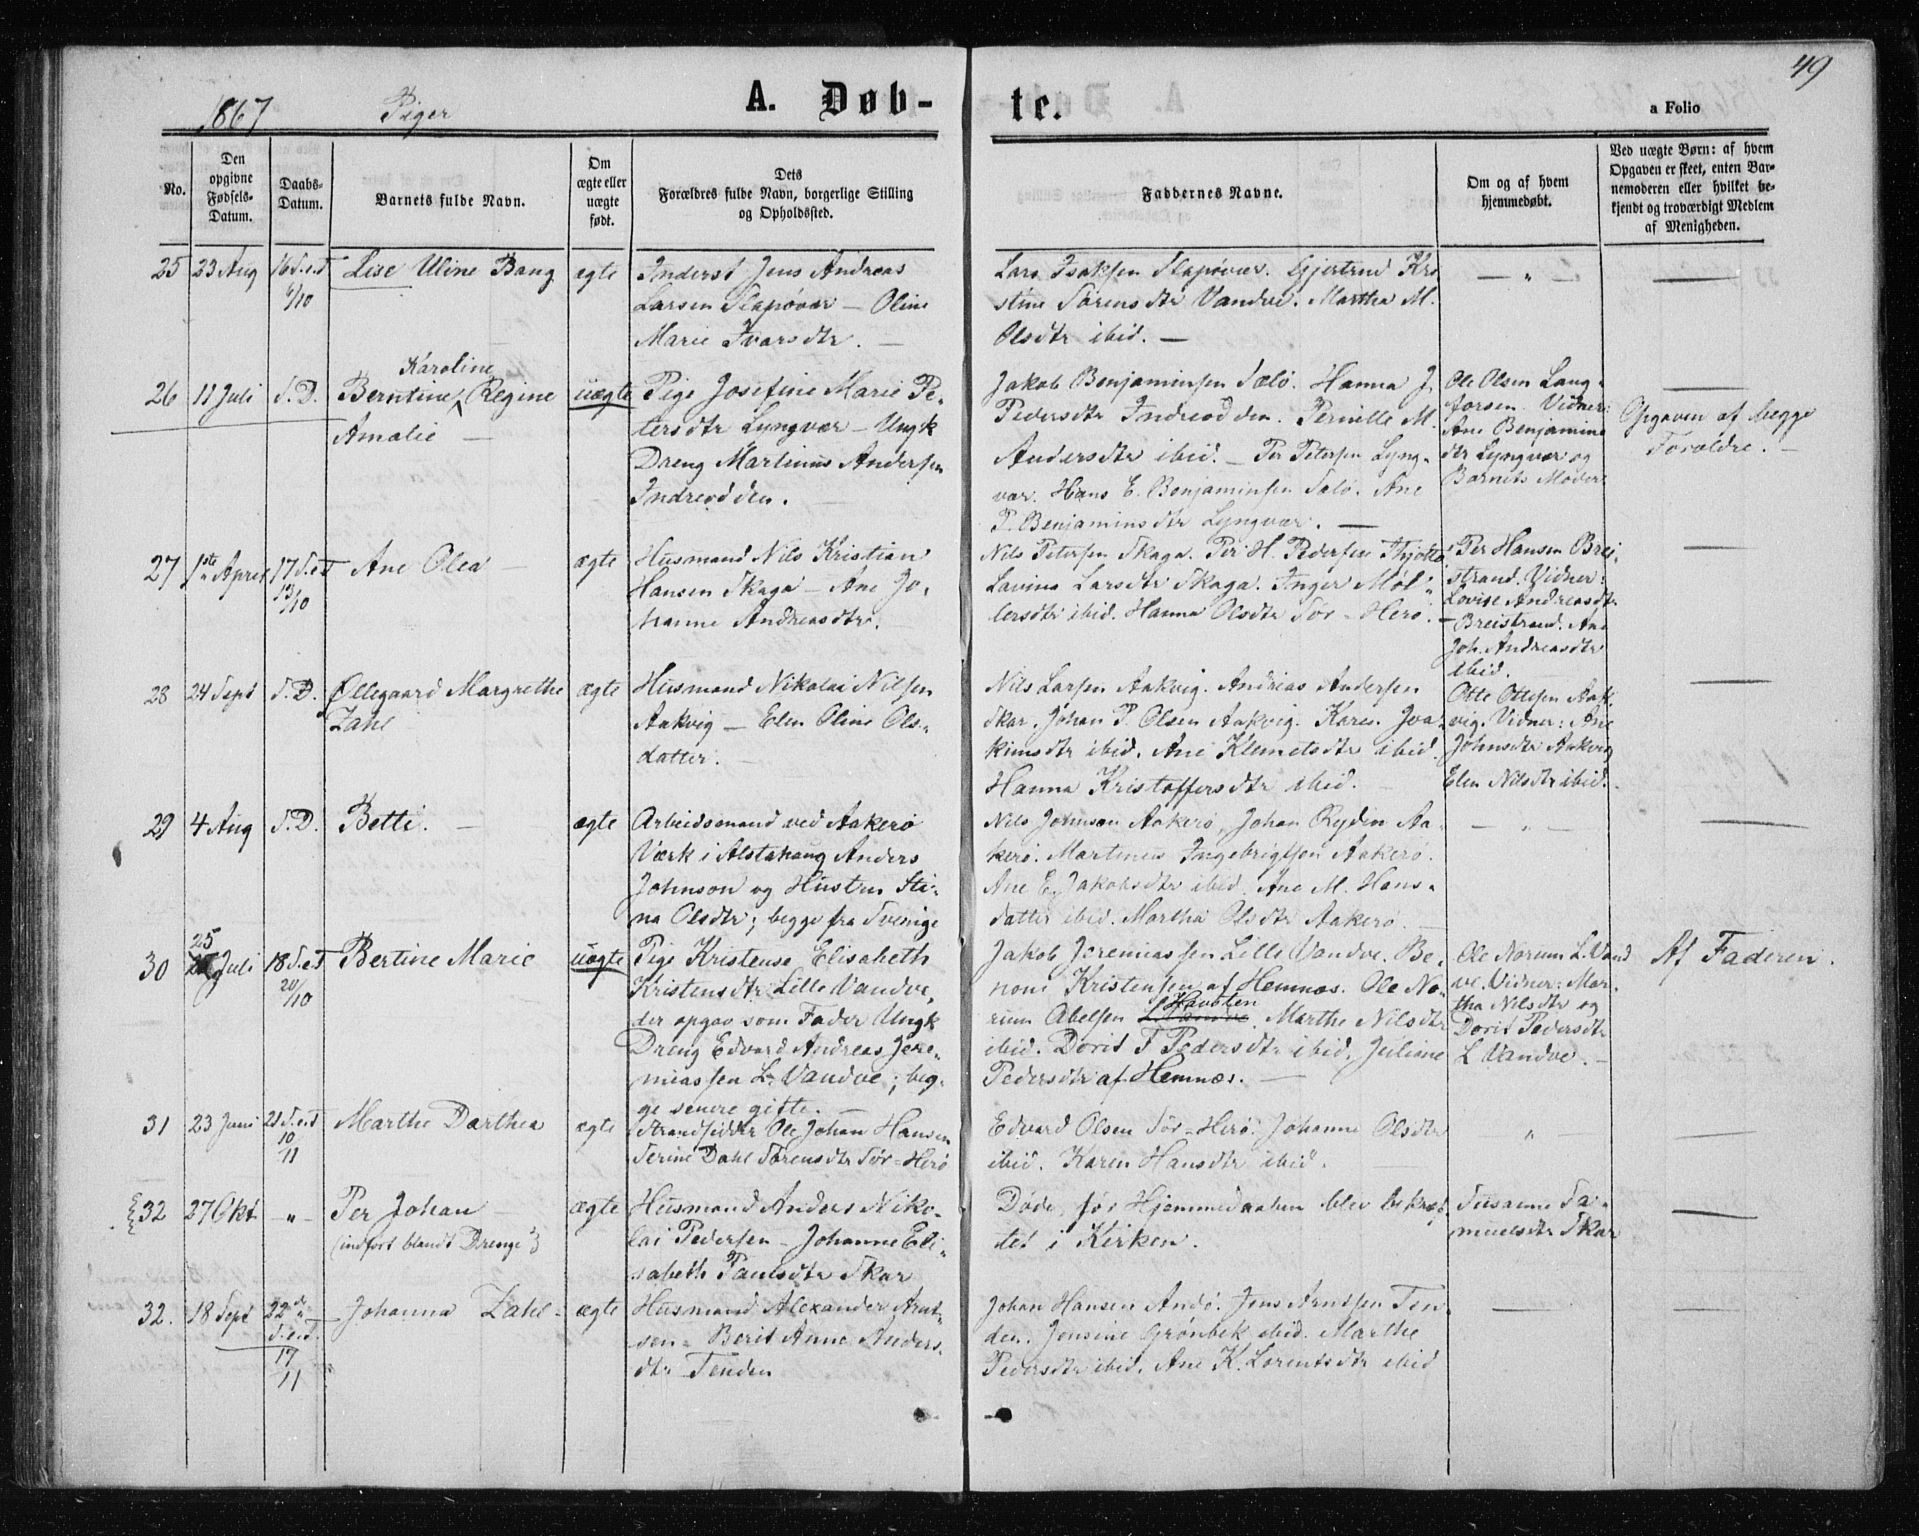 49
1867 Piger A. Døb-
te. a Folio
No.
Den opgivne Fødsels-Datum.
Daabs-Datum.
Barnets fulde Navn.
Om ægte eller uægte født.
Dets Forældres fulde Navn, borgerlige Stilling og Opholdssted.
Faddernes Navne.
Om og af hvem hjemmedøbt.
Ved uægte Børn: af hvem Opgaven er skeet, enten Barnemoderen eller hvilket bekjendt og troværdigt Medlem af Menigheden.
25 23 Aug 16 S.e.T 6/10 Lise Uline Bang ægte
Inderst Jens Andreas
Larsen Slapøvær — Oline
Marie Ivarsdtr. —
Lars Isaksen Slapøvær. Gjertrud Kri
stine Sørensdtr Vandve. Martha M.
Olsdtr ibid. —
— " —
26 11 Juli S.D. Karoline
Berntine Regine
Amalie —
uægte
Pige Josefine Marie Pe-
tersdtr Lyngvær — Ungk
Dreng Martinus Andersen
Indreodden.
Jakob Benjaminsen Sælø. Hanna J.
Pedersdtr Indreodden. Pernille M.
Andersdtr ibid. — Per Petersen Lyng-
vær. Hans E. Benjaminsen Sælø. Ane
P. Benjaminsdtr Lyngvær. —
Ole Olsen Lang-
forsen. Vidner:
Ane Benjamins
dtr Lyngvær og
Barnets Moder.
Opgaven af begge
Forældre. —
27 1ste April 17 S.e.T 13/10 Ane Olea — ægte
Husmand Nils Kristian
Hansen Skaga — Ane Jo-
hanne Andreasdtr.
Nils Petersen Skaga. Per H. Pedersen Thjøtta.
Lavina Larsdtr Skaga. Inger Møl-
lersdtr ibid. Hanna Olsdtr Sør-Herø. —
Per Hansen Brei-
strand. Vidner:
Lovise Andreasdtr
Breistrand. Ane
Joh. Andreasdtr
ibid.
28 24 Sept S.D. Øllegaard Margrethe
Zahl
ægte
Husmand Nikolai Nilsen
Aakvig — Elen Oline Ols-
datter. —
Nils Larsen Aakvig. Andreas Andersen
Skar. Johan P. Olsen Aakvig. Karen Joa-
kimsdtr ibid. Ane Klemetsdtr ibid.
Hanna Kristoffersdtr ibid. —
Otte Ottesen Aak-
vig. Vidner: Ane
Johnsdtr Aakvig
Elen Nilsdtr ibid.
29 4 Aug S.D. Betti. — ægte
Arbeidsmand ved Aakerø
Værk i Alstahaug Anders
Johnson og Hustru Sti-
na Olsdtr; begge fra Sverige
Nils Johnson Aakerø, Johan Rydin Aa-
kerø. Martinus Ingebrigtsen Aakerø.
Ane E. Jakobsdtr ibid. Ane M. Hans-
datter ibid. Martha Olsdtr Aakerø. —
— " —
30 25 Juli 18 S.e.T 20/10 Bertine Marie uægte
Pige Kristense Elisabeth
Kristensdtr Lille Vandve,
der opgav som Fader Ungk
Dreng Edvard Andreas Jere-
miassen L. Vandve; beg-
ge senere gifte.
Jakob Jeremiassen Lille Vandve. Be-
noni Kristensen af Hemnæs. Ole No-
rum Abelsen L. Vandve Havsten. Marthe Nilsdtr
ibid. Dorit F Pedersdtr ibid. Juliane
Pedersdtr af Hemnæs. —
Ole Norum L. Vand
ve. Vidner: Mar-
tha Nilsdtr og
Dorit Pedersdtr
L Vandve. —
Af Faderen.
31 23 Juni 21 S.e.T 10/11 Marthe Dorthea ægte
Strandsidder Ole Johan Hansen
Serine Dahl Sørensdtr Sør-Herø
Edvard Olsen Sør-Herø. Johanne Olsdtr
ibid. Karen Hansdtr ibid. —
" —
32 27 Okt — " — Per Johan —
(indført blandt Drenge)
ægte
Husmand Anders Niko-
lai Pedersen — Johanne Eli-
sabeth Paulsdtr Skar
Døde, før Hjemmedaaben blev bekræf
tet i Kirken.
Susanne Sa-
muelsdtr Skar
32. 18 Sept 22de S.e.T. 17/11 Johanna Zahl - ægte
Husmand Alexander Arnt-
sen - Berit Anne Anders-
dtr Tenden
Johan Hansen Andø. Jens Arntsen Ten-
den. Jensine Grønbek ibid. Marthe
Pedersdtr ibid. Ane K. Lorentsdtr ibid